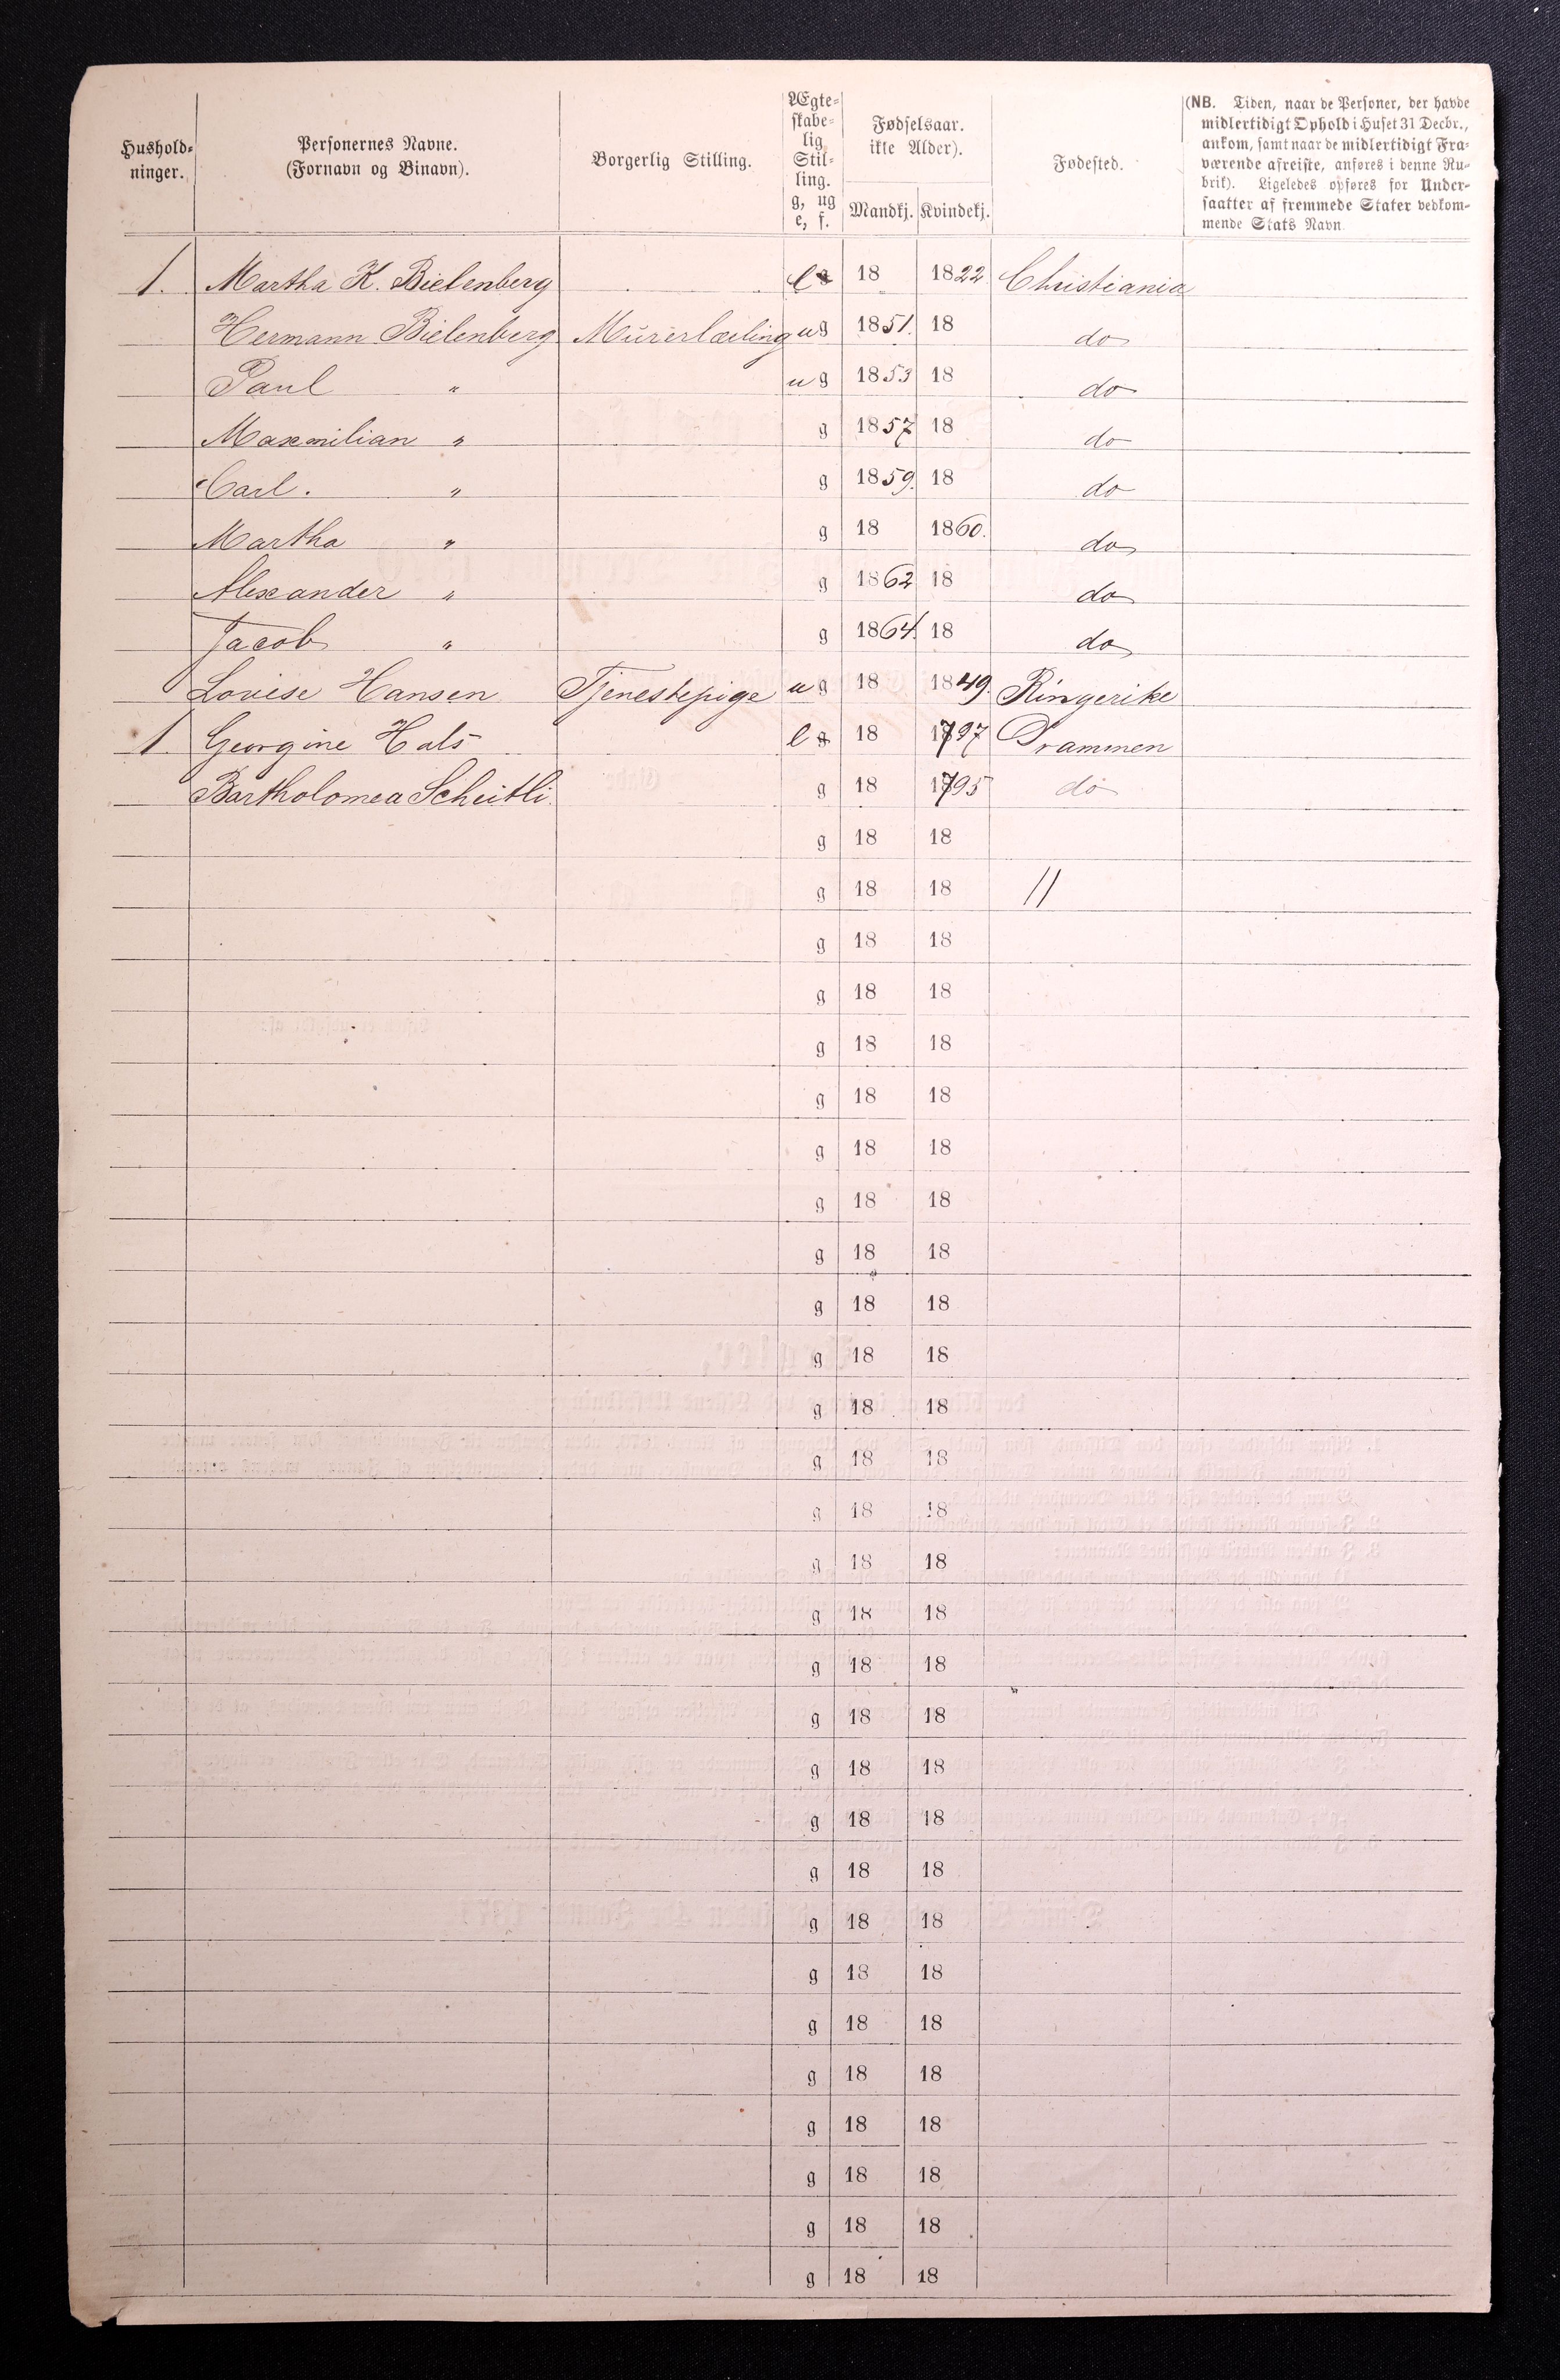 Hushold-
ninger.
Personernes Navne.
(Fornavn og Binavn).
Borgerlig Stilling.
Ægte-
skabe-
lig
Stil-
ling.
g, ug
e, f.
Fødselsaar.
ikke Alder).
Mandkj. Kvindekj.
Fødested.
(NB. Tiden, naar de Personer, der havde
midlertidigt Ophold i Huset 31 Decbr.,
ankom, samt naar de midlertidigt Fra-
værende afreiste, anføres i denne Ru-
brik). Ligeledes opføres for Under-
saatter af fremmede Stater vedkom-
mende Stats Navn.
1. Martha K. Bielenberg e g 18 1822 Christiania
Hermann Bielenberg Murerlæiling ug 1851. 18 do
Paul " ug 1853 18 do
Maxmilian " g 1857 18 do
Carl. " g 1859. 18 do
Martha " g 18 1860. do
Alexander " g 1862 18 do
Jacob " g 1864. 18 do
Lovise Hansen Tjenestepige ug 18 1849. Ringerike
1 Georgine Hals e g 18 1797 Drammen
Bartholomea Scheitli g 18 1795 do
g 18 18
g 18 18 11
g 18 18
g 18 18
g 18 18
g 18 18
g 18 18
g 18 18
g 18 18
g 18 18
g 18 18
g 18 18
g 18 18
g 18 18
g 18 18
g 18 18
g 18 18
g 18 18
g 18 18
g 18 18
g 18 18
g 18 18
g 18 18
g 18 18
g 18 18
g 18 18
g 18 18
g 18 18
g 18 18